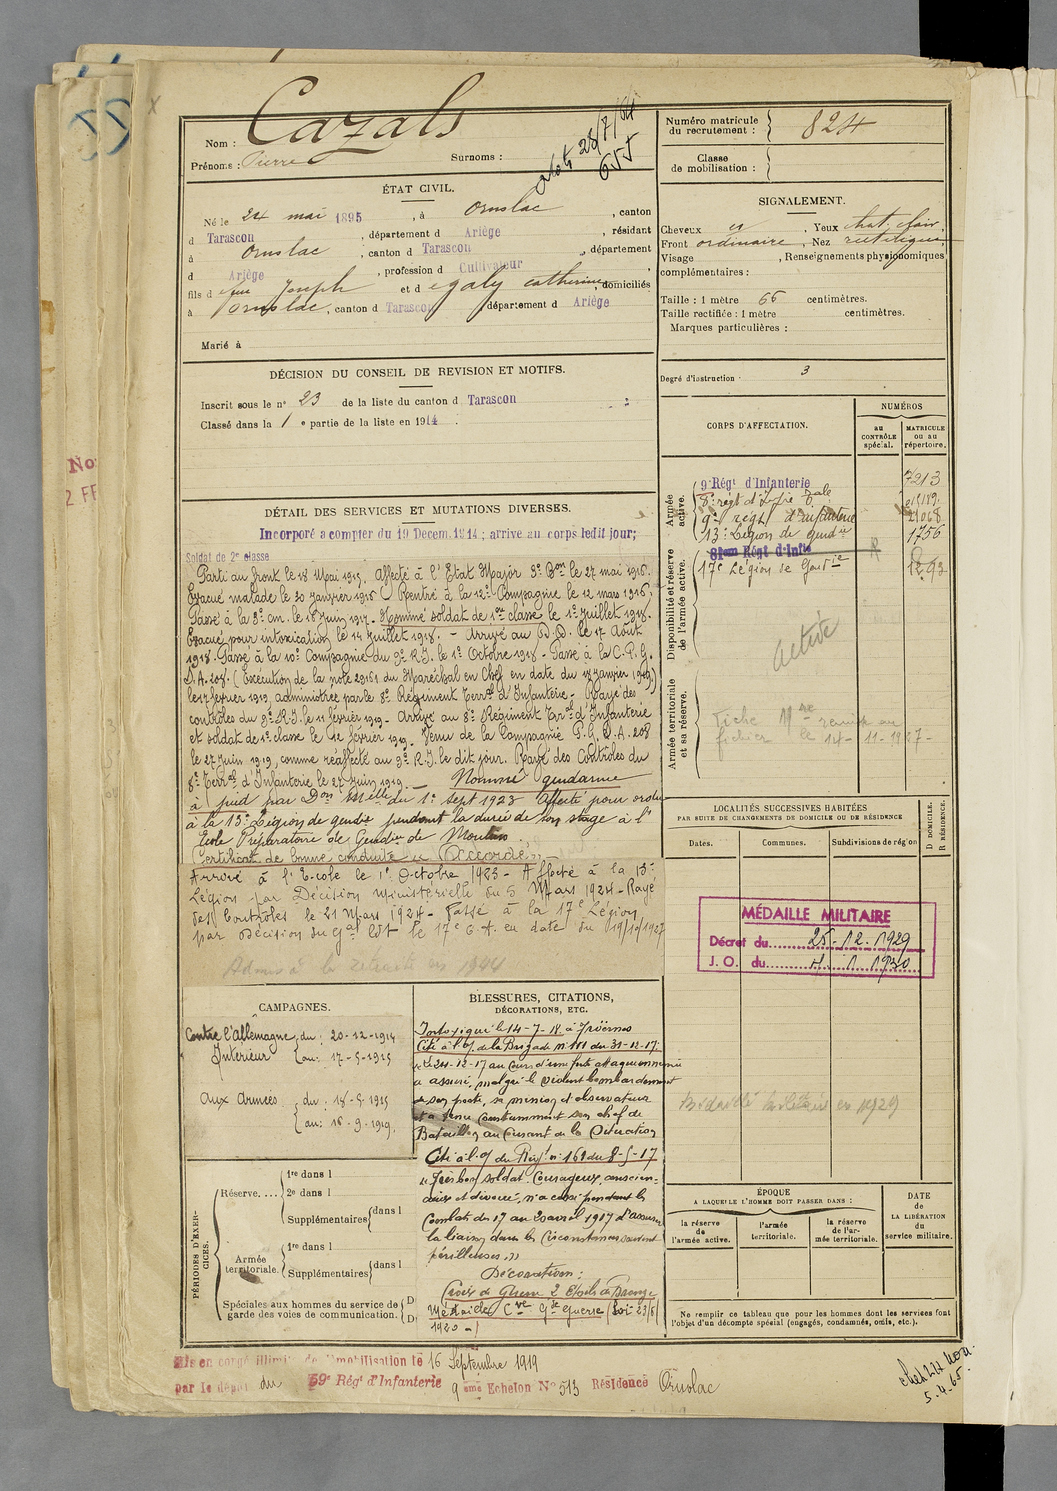 Cazals
Nom :
Prénoms : Pierre
Surnoms :
28/7/54
655
Numéro matricule
du recrutement : 824
Classe
de mobilisation :
ÉTAT CIVIL.
Né le 24 mai 1895, à Ornolac, canton
d Tarascon, département d Ariège, résidant
à Ornolac, canton d Tarascon, département
d Ariège, profession d Cultivateur,
fils d e feu Joseph et d e galy catherine, domiciliés
à Ornolac, canton d Tarascon département d Ariège
Marié à
SIGNALEMENT.
Cheveux , Yeux chat. clair,
Front ordinaire, Nez rectiligne
Visage , Renseignements physionomiques
complémentaires :
Taille : 1 mètre 66 centimètres.
Taille rectifiée : 1 mètre centimètres.
Marques particulières :
Degré d'instruction : 3
DÉCISION DU CONSEIL DE REVISION ET MOTIFS.
Inscrit sous le n° 23 de la liste du canton d Tarascon
Classé dans la 1 e partie de la liste en 1914.
DÉTAIL DES SERVICES ET MUTATIONS DIVERSES.
Incorporé à compter du 19 Decem. 1914 ; arrive au corps ledit jour;
Soldat de 2e classe
Parti au front le 18 Mai 1915. Affecté à l'Etat Major 3e Bon le 27 mai 1915.
Evacué malade le 30 janvier 1916 Rentré à la 12e Compagnie le 12 mars 1916,
Passé à la 3e c.m. le 18 Juin 1917. Nommé soldat de 1ère classe le 1er Juillet 1918.
Evacué pour intoxication le 14 Juillet 1918. - Arrivé au D.D. le 17 Août
1918. Passé à la 10e Compagnie du 9e R.I. le 1er Octobre 1918 - Passé à la C.P.G.
D.A. 208. (Exécution de la note 29161 du Maréchal en Chef en date du 18 Janvier 1919)
le 17 février 1919, administrée par le 8e Régiment Terral d'Infanterie - Rayé des
contrôles du 9e R.I. le 11 février 1919 - Arrivé au 8e Régiment Terral d'Infanterie
et soldat de 1e classe le 12 février 1919. Venu de la Compagnie P.G. D.A. 208
le 27 Juin 1919, comme réaffecté au 9e R.I. le dit jour. Rayé des Contrôles du
8e Terral d'Infanterie le 27 Juin 1919 - Nommé gendarme
à pied par Don Melle du 1er sept 1923 Affecté pour ordre
à la 13e Légion de gendie pendant la durée de son stage à l'
Ecole Préparatoire de Gendie de Moulins.
Certificat de bonne conduite « Accordé » -
Arrivé à l'Ecole le 1er Octobre 1923 - Affecté à la 13e
Légion par Décision ministérielle du 5 Mars 1924 - Rayé
des Contrôles le 21 Mars 1924 - Passé à la 17e Légion
par Décision du Gal Cdt le 17e C.A. en date du 19/10/1927
Admis à la retraite en 1944
CORPS D'AFFECTATION.
NUMÉROS
au
CONTRÔLE
spécial.
MATRICULE
ou au
répertoire.
Armée
active.
9e Régt d'Infanterie 7213
8e régt d'Infie Tale
9e régt d'infanterie 21068
13e Légion de gendie 1756
Disponibilité et réserve
de l'armée active.
81eme Régt d'Infie
17e Légion de Gendie
Active
Armée territoriale
et sa réserve.
Fiche Mre remise au
fichier le 14-11-1927-
LOCALITÉS SUCCESSIVES HABITÉES
PAR SUITE DE CHANGEMENTS DE DOMICILE OU DE RÉSIDENCE
Dates.
Communes.
Subdivisions de région
D DOMICILE.
R RÉSIDENCE.
MÉDAILLE MILITAIRE
Décret du 25-12-1929
J. O. du 1 1930
Médaillé Militaire en 1929
CAMPAGNES.
Contre l'Allemagne du : 20-12-1914
Intérieur au : 17-5-1915
Aux Armées du : 18-5-1915
au : 16-9-1919.
BLESSURES, CITATIONS,
DÉCORATIONS, ETC.
Intoxiqué le 14-7-18 à
Cité à l'O/ de la Brigade n° 111 du 31-12-17.
« Le 24-12-17 au cours d'une forte attaque ennemie
a assuré, malgré le violent bombardement
de son poste, sa mission d'observateur
et a tenu constamment son chef de
Bataillon au courant de la situation
Cité à l'O/ du Régt n° 161 du 8-5-17
« Très bon soldat. Courageux, conscien-
cieux et dévoué, n'a cessé pendant les
Combats du 17 au 20 avril 1917 d'assurer
la liaison dans les circonstances souvent
périlleuses. »
Décorations :
Croix de Guerre 2 Etoiles de Bronze
Médaille Cve Gde Guerre (Loi 23/6/
1920 -)
PÉRIODES D'EXER-
CICES.
Réserve....
1re dans l
2e dans l
Supplémentaires dans l
Armée
territoriale.
1re dans l
Supplémentaires dans l
Spéciales aux hommes du service de
garde des voies de communication.
D
D
ÉPOQUE
A LAQUELLE L'HOMME DOIT PASSER DANS :
la réserve
de
l'armée active.
l'armée
territoriale.
la réserve
de l'ar-
mée territoriale.
DATE
de
LA LIBÉRATION
du
service militaire.
Ne remplir ce tableau que pour les hommes dont les services font
l'objet d'un décompte spécial (engagés, condamnés, omis, etc.).
Mis en congé illimité de démobilisation le 16 Septembre 1919
par le dépôt du 59e Régt d'Infanterie 9 ème Echelon No 513 Résidence Ornolac
5.4.65.